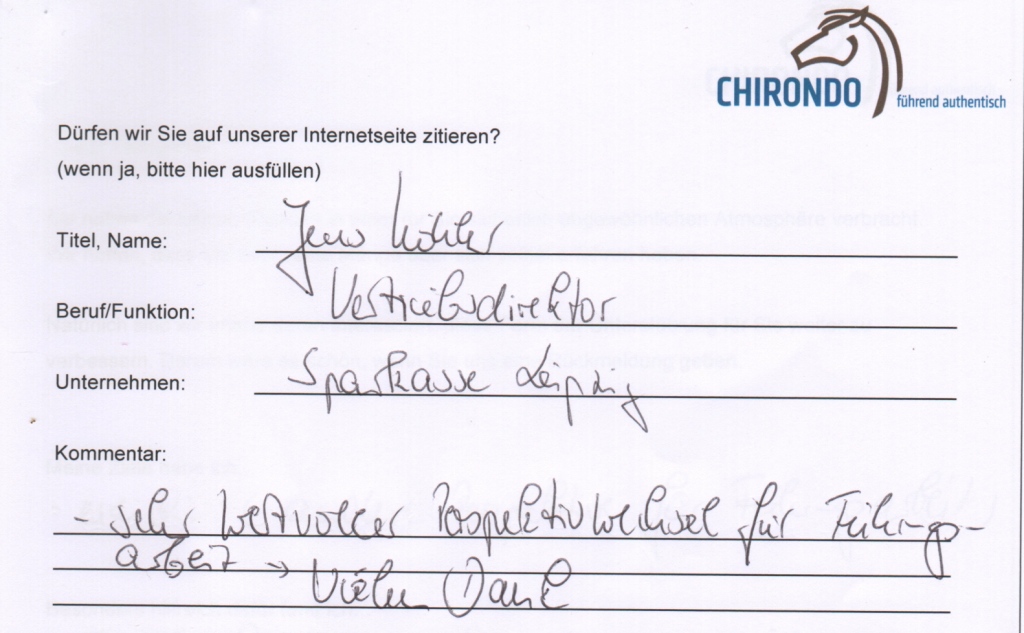 CHIRONDO
führend authentisch
Dürfen wir Sie auf unserer Internetseite zitieren?
(wenn ja, bitte hier ausfüllen)
Titel, Name: Jens Köhler
Beruf/Funktion: Vertriebsdirektor
Unternehmen: Sparkasse Leipzig
Kommentar:
- sehr wertvoller Perspektivwechsel für Führungs-
arbeit → Vielen Dank